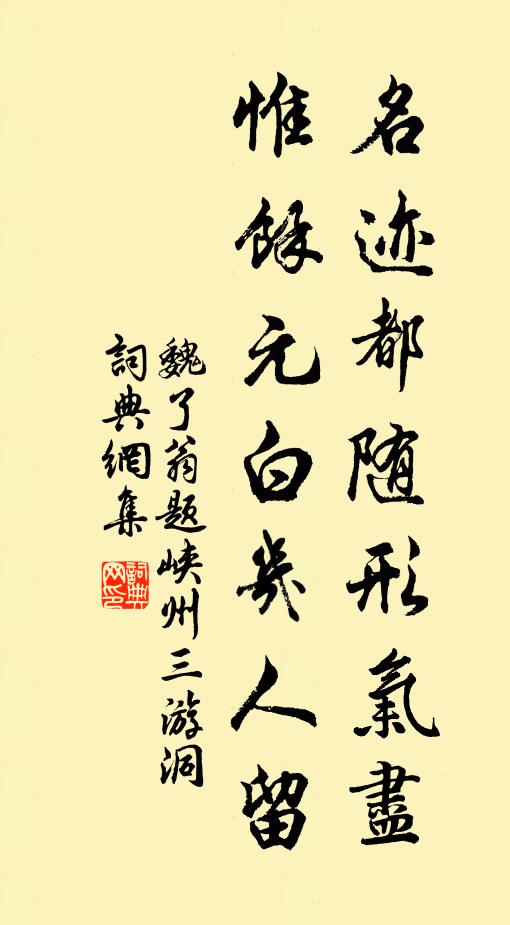 名迹都随形氣盡
惟餘元白幾人留
魏了翁题峡州三游洞
詞典網集
詞典網印